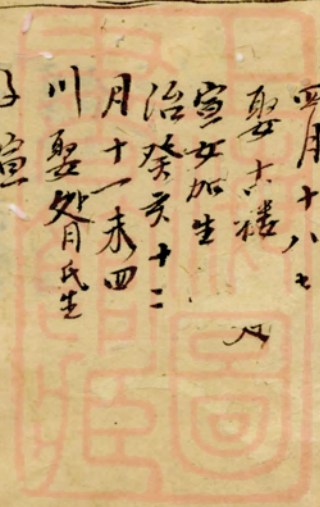 四月十八
娶古楼
宣女加生
治癸亥十二
月十一未四
川娶处月氏生
宣